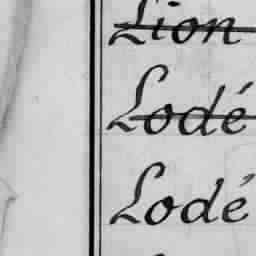 Lion
Lodé
Lodé